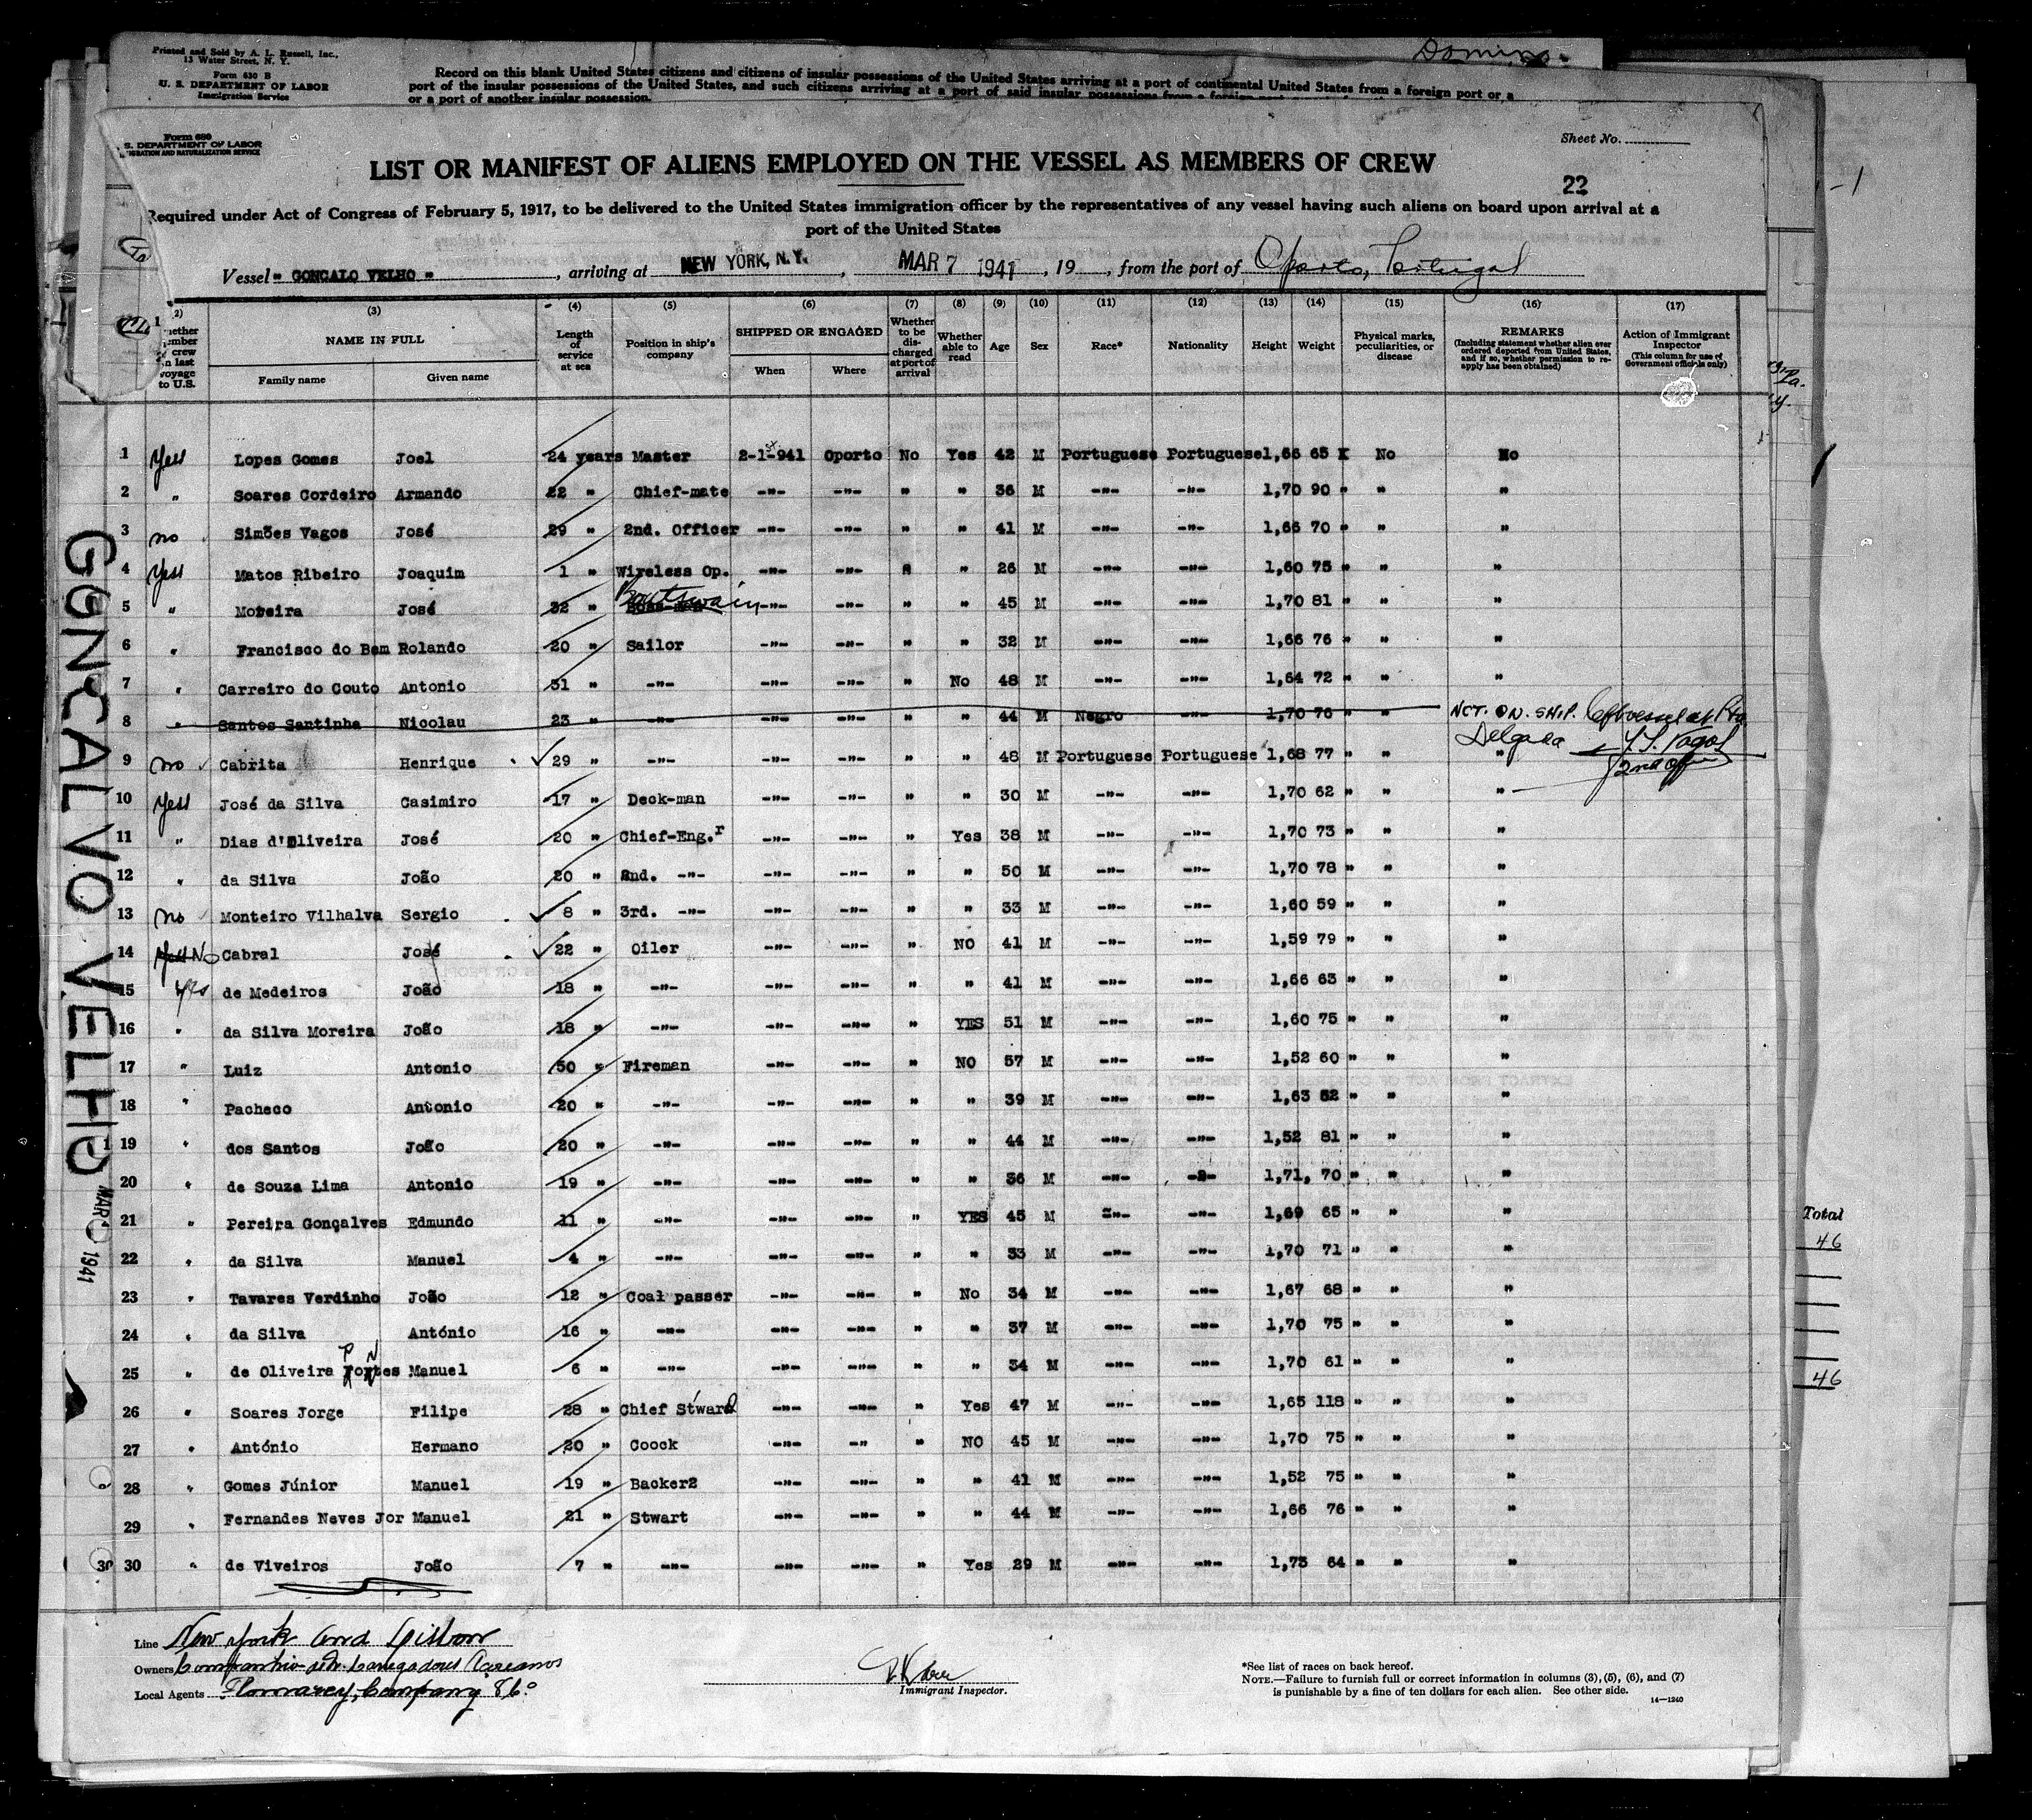 Domino
Printed and Sold by A. L. Russell, Inc.,
13 Water Street, N. Y.
Form 630 B
U. S. DEPARTMENT OF LABOR
Immigration Service
Record on this blank United States citizens and citizens of insular possessions of the United States arriving at a port of continental United States from a foreign port or a
port of the insular possessions of the United States, and such citizens arriving at a port of said insular possessions from a foreign port
or a port of another insular possession.
Form 680
S. DEPARTMENT OF LABOR
IMMIGRATION AND NATURALIZATION SERVICE
Sheet No.
LIST OR MANIFEST OF ALIENS EMPLOYED ON THE VESSEL AS MEMBERS OF CREW
22
Required under Act of Congress of February 5, 1917, to be delivered to the United States immigration officer by the representatives of any vessel having such aliens on board upon arrival at a
port of the United States
Vessel " GONCALO VELHO " , arriving at NEW YORK, N.Y. , MAR 7 1941 , 19 , from the port of Oporto, Portugal
(2) (3) (4) (5) (6) (7) (8) (9) (10) (11) (12) (13) (14) (15) (16) (17)
NAME IN FULL Length of service at sea Position in ship's company SHIPPED OR ENGAGED Whether to be discharged at port of arrival Whether able to read Age Sex Race* Nationality Height Weight Physical marks, peculiarities, or disease REMARKS Action of Immigrant Inspector
(Including statement whether alien ever ordered deported from United States, and if so, whether permission to reapply has been obtained) (This column for use of Government officials only)
Family name Given name When Where
1 Yes Lopes Gomes Joel 24 years Master 2-1-941 Oporto No Yes 42 M Portuguese Portuguese 1,66 65 K No No
2 " Soares Cordeiro Armando 22 " Chief-mate -"- -"- " " 36 M -"- -"- 1,70 90 " " "
3 no Simões Vagos José 29 " 2nd. Officer -"- -"- " " 41 M -"- -"- 1,66 70 " " "
4 Yes Matos Ribeiro Joaquim 1 " Wireless Op. -"- -"- " " 26 M -"- -"- 1,60 75 " " "
5 " Moreira José 32 " Boatswain -"- -"- " " 45 M -"- -"- 1,70 81 " " "
6 " Francisco do Bem Rolando 20 " Sailor -"- -"- " " 32 M -"- -"- 1,66 76 " " "
7 " Carreiro do Couto Antonio 31 " -"- -"- -"- " No 48 M -"- -"- 1,64 72 " " "
8 " Santos Santinha Nicolau 23 " -"- -"- -"- " " 44 M Negro -"- 1,70 76 " " NOT ON SHIP. Left vessel at Pta
Delgada J. S. Vagos
2nd Officer
9 no Cabrita Henrique 29 " -"- -"- -"- " " 48 M Portuguese Portuguese 1,68 77 " " "
10 Yes José da Silva Casimiro 17 " Deck-man -"- -"- " " 30 M -"- -"- 1,70 62 " " "
11 " Dias d'Oliveira José 20 " Chief-Eng.r -"- -"- " Yes 38 M -"- -"- 1,70 73 " " "
12 " da Silva João 20 " 2nd. -"- -"- -"- " " 50 M -"- -"- 1,70 78 " " "
13 no Monteiro Vilhalva Sergio 8 " 3rd. -"- -"- -"- " " 33 M -"- -"- 1,60 59 " " "
14 Yes No Cabral José 22 " Oiler -"- -"- " NO 41 M -"- -"- 1,59 79 " " "
15 Yes de Medeiros João 18 " -"- -"- -"- " " 41 M -"- -"- 1,66 63 " " "
16 " da Silva Moreira João 18 " -"- -"- -"- " YES 51 M -"- -"- 1,60 75 " " "
17 " Luiz Antonio 50 " Fireman -"- -"- " NO 57 M -"- -"- 1,52 60 " " "
18 " Pacheco Antonio 20 " -"- -"- -"- " " 39 M -"- -"- 1,63 52 " " "
19 " dos Santos João 20 " -"- -"- -"- " " 44 M -"- -"- 1,52 81 " " "
20 " de Souza Lima Antonio 19 " -"- -"- -"- " " 36 M -"- -"- 1,71, 70 " " "
21 " Pereira Gonçalves Edmundo 11 " -"- -"- -"- " YES 45 M -"- -"- 1,69 65 " " "
22 " da Silva Manuel 4 " -"- -"- -"- " " 33 M -"- -"- 1,70 71 " " "
23 " Tavares Verdinho João 12 " Coal passer -"- -"- " No 34 M -"- -"- 1,67 68 " " "
24 " da Silva António 16 " -"- -"- -"- " " 37 M -"- -"- 1,70 75 " " "
25 " de Oliveira Pontes Manuel 6 " -"- -"- -"- " " 34 M -"- -"- 1,70 61 " " "
26 " Soares Jorge Filipe 28 " Chief Stward -"- -"- " Yes 47 M -"- -"- 1,65 118 " " "
27 " António Hermano 20 " Coock -"- -" " NO 45 M -"- -"- 1,70 75 " " "
28 " Gomes Júnior Manuel 19 " Backer2 -"- -"- " " 41 M -"- -"- 1,52 75 " " "
29 " Fernandes Neves Jor Manuel 21 " Stwart -"- -"- " " 44 M -"- -"- 1,66 76 " " "
30 30 " de Viveiros João 7 " -"- -"- -"- " Yes 29 M -"- -"- 1,73 64 " " "
GONCALVO VELHO
MAR 1941
Total
46
46
Line New York and Lisbon
Owners Companhia de Carregadores Açoreanos
Local Agents
Immigrant Inspector.
*See list of races on back hereof.
NOTE.—Failure to furnish full or correct information in columns (3), (5), (6), and (7)
is punishable by a fine of ten dollars for each alien. See other side.
14—1240